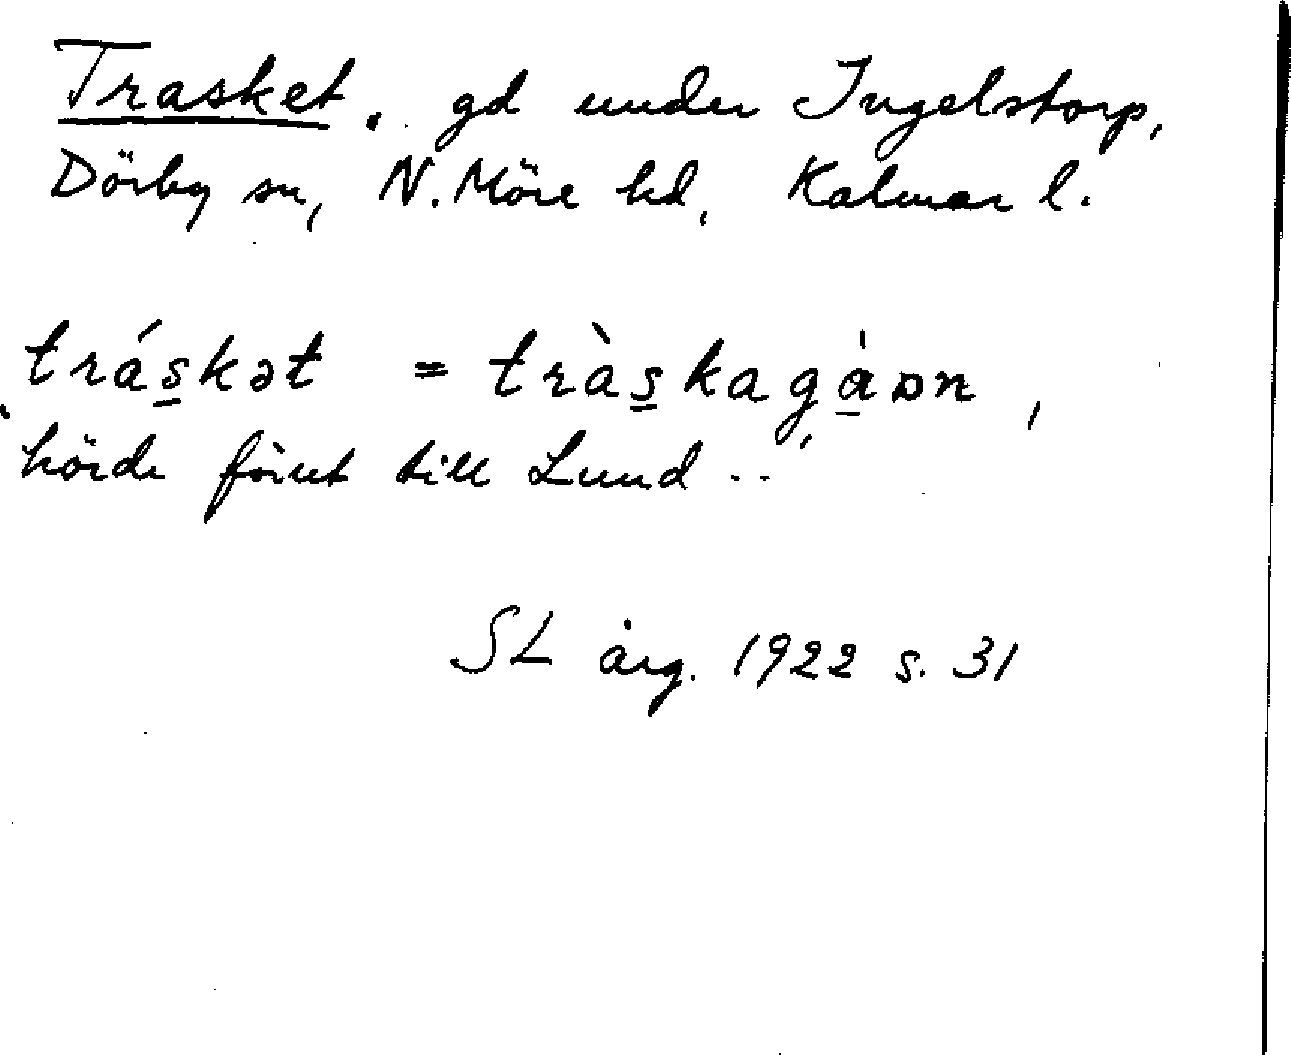 Trasket. gd under Ingelstorp,
Dörby sn, N. Möre hd, Kalmar l.
trás̱kət = tràs̱kagá̱ɒn,
hörde förut till Lund ..
SL årg. 1922 s. 31